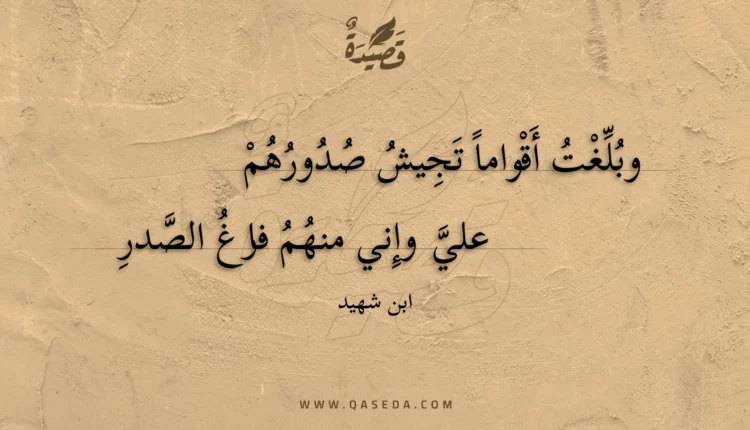 قَصِيدَةٌ
وبُلِّغْتُ أَقْواماً تَجِيشُ صُدُورُهُمْ
عليَّ وإِني منهُمُ فارغُ الصَّدرِ
ابن شهيد
WWW.QASEDA.COM